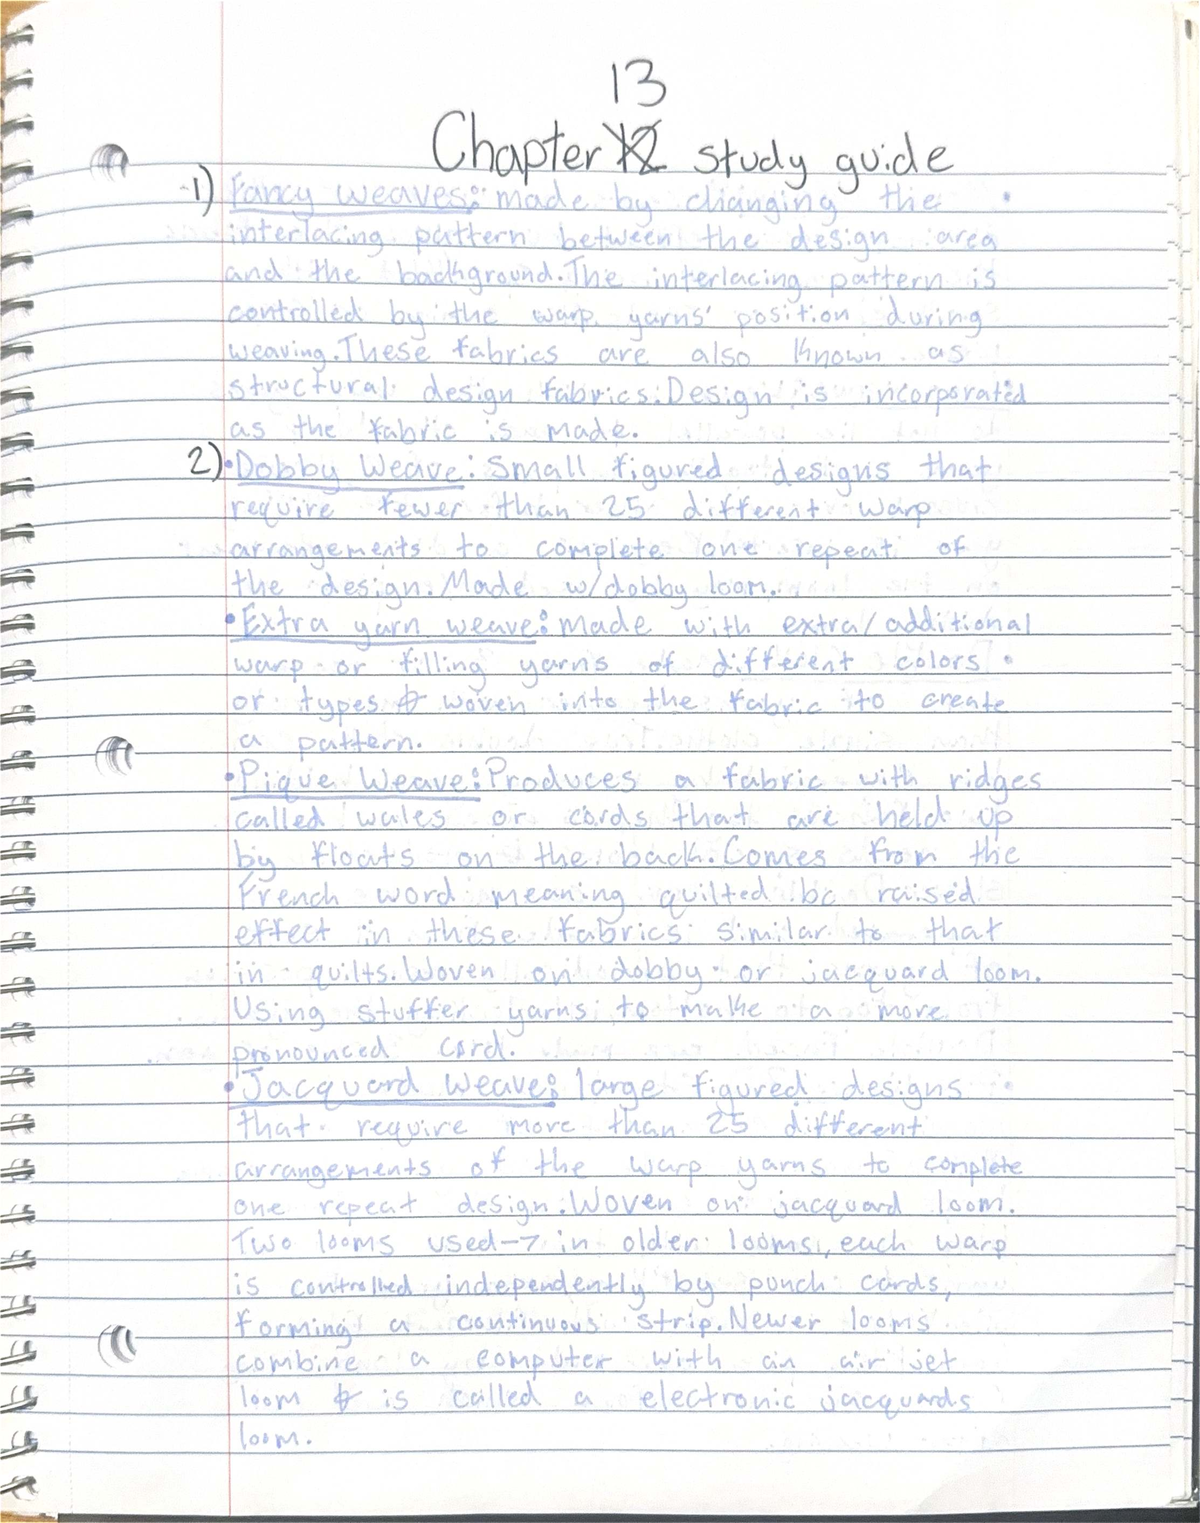 13
Chapter 12 study guide
1) Fancy weaves: made by changing the
interlacing pattern between the design area
and the background. The interlacing pattern is
controlled by the warp yarns' position during
weaving. These fabrics are also known as
structural design fabrics. Design is incorporated
as the fabric is made.
2) •Dobby Weave: Small figured designs that
require fewer than 25 different warp
arrangements to complete one repeat of
the design. Made w/dobby loom.
•Extra yarn weave: made with extra/additional
warp or filling yarns of different colors
or types & woven into the fabric to create
a pattern.
•Pique Weave: Produces a fabric with ridges
called wales or cords that are held up
by floats on the back. Comes from the
French word meaning quilted bc raised
effect in these fabrics similar to that
in quilts. Woven on dobby or jacquard loom.
Using stuffer yarns to make a more
pronounced cord.
•Jacquard weave: large figured designs
that require more than 25 different
arrangements of the warp yarns to complete
one repeat design. Woven on jacquard loom.
Two looms used→ in older looms, each warp
is controlled independently by punch cards,
forming a continuous strip. Newer looms
combine a computer with an air jet
loom & is called a electronic jacquards
loom.